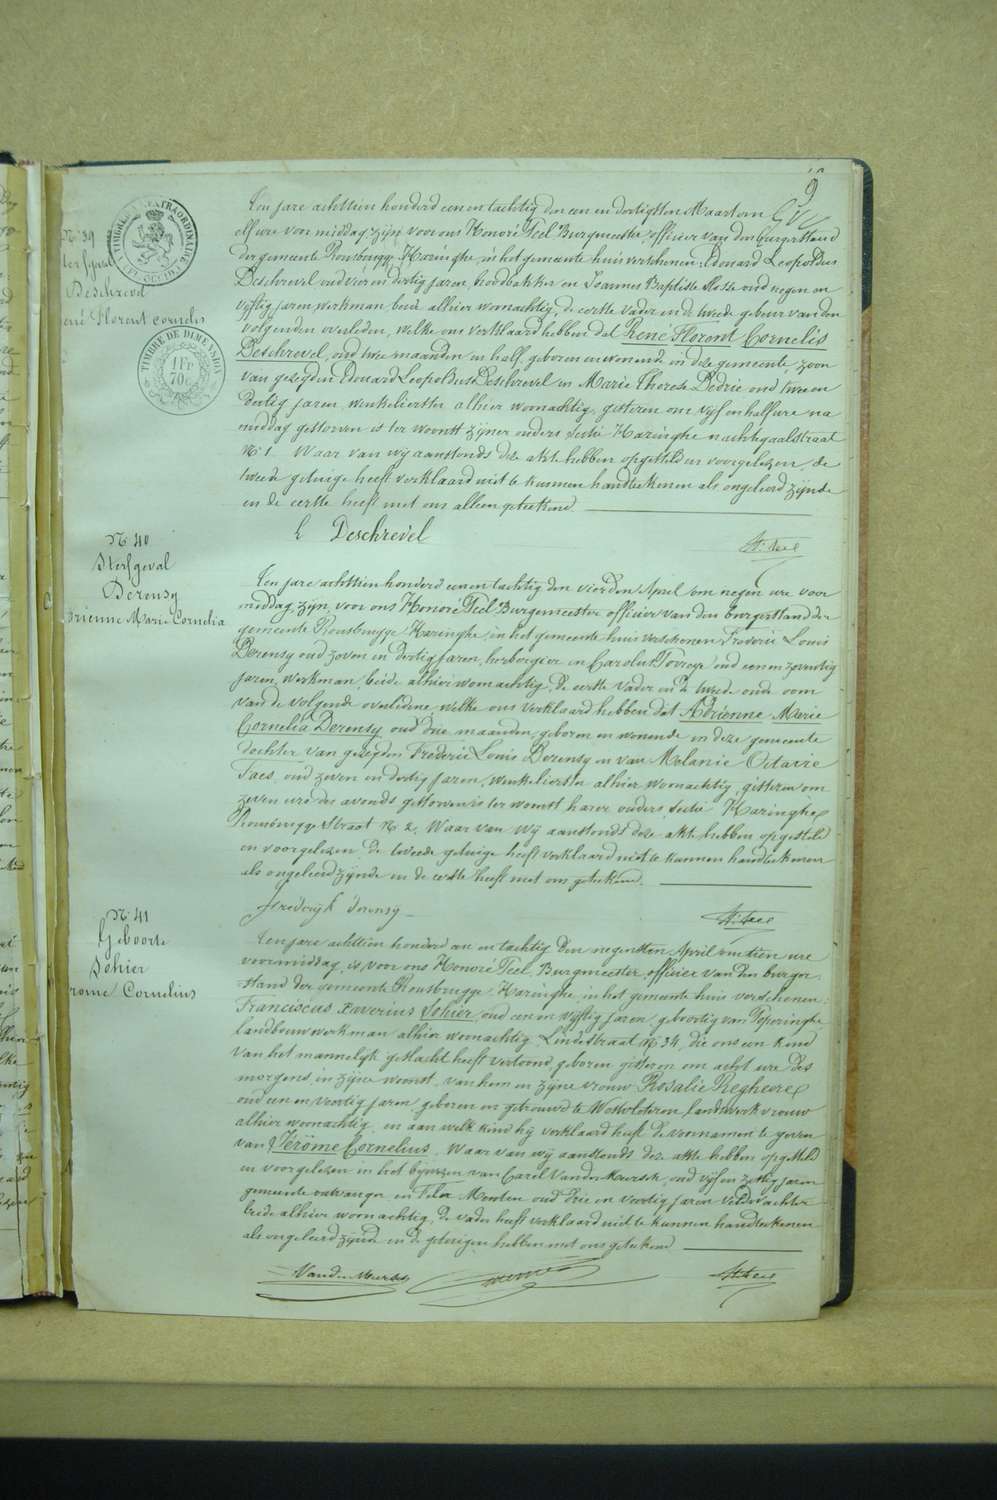 9
TIMBRE EXTRAORDINAIRE
TIMBRE DE DIMENSION
1 FR
70 C
N° 39
Deschrevel
René Florent cornelis
Ten jare achttien honderd een en tachtig den een en dertigsten Maart om
elf ure voor middag zijn voor ons Honoré Teel Burgmeester officier van den Burgerstand
der gemeente Rousbrugge Haringhe, in het gemeente huis verschenen: Edouard Leopoldus
Deschrevel oud vier en dertig jaren, broodbakker en Joannes Baptiste oud negen en
vijftig jaren, werkman, beide alhier woonachtig, de eerste vader en de tweede gebuur van den
volgenden overleden, welke ons verklaard hebben dat René Florent Cornelis
Deschrevel, oud twee maanden en half, geboren en wonende in deze gemeente, zoon
van gezegden Edouard Leopoldus Deschrevel en Marie Therese oud twee en
dertig jaren, winkelierster alhier woonachtig, gisteren om vijf en half ure na
middag gestorven is ter woonst zijner ouders sectie Haringhe nachtegaalstraat
N° 1. Waar van wij aanstonds deze akte hebben opgesteld en voorgelezen, de
tweede getuige heeft verklaard niet te kunnen handteekenen als ongeleerd zijnde
en de eerste heeft met ons alleen geteekend
E Deschrevel
H. Teel
N° 40
Sterfgeval
Derensy
Adrienne Marie Cornelia
Ten jare achttien honderd een en tachtig den vierden April om negen ure voor
middag, zijn voor ons Honoré Teel Burgmeester officier van den burgerstand der
gemeente Rousbrugge Haringhe, in het gemeente huis verschenen Frederic Louis
Derensy oud zeven en dertig jaren, herbergier en Carolus oud een en zeventig
jaren, werkman, beide alhier woonachtig, de eerste vader en de tweede oude oom
van de volgende overledene, welke ons verklaard hebben dat Adrienne Marie
Cornelia Derensy oud drie maanden, geboren en wonende in deze gemeente
dochter van gezegden Frederic Louis Derensy en van Melanie Octavie
Taes oud zeven en dertig jaren, winkelierster alhier woonachtig, gisteren om
zeven ure des avonds gestorven is ter woonst harer ouders, sectie Haringhe
Rousbrugge Straat N° 2. Waar van wij aanstonds deze akte hebben opgesteld
en voorgelezen, de tweede getuige heeft verklaard niet te kunnen handteekenen
als ongeleerd zijnde en de eerste heeft met ons geteekend.
frederyk derensy
H. Teel
N° 41
Geboorte
Sohier
Jerome Cornelius
Ten jare achttien honderd een en tachtig den negensten April om tien ure
voormiddag, is voor ons Honoré Teel, Burgmeester, officier van den burger
stand der gemeente Rousbrugge Haringhe, in het gemeente huis verschenen:
Franciscus Xaverius Sohier, oud een en vijftig jaren, geboortig van Poperinghe
landbouwwerkman alhier woonachtig, Lindestraat N° 34, die ons een kind
van het mannelijk geslacht heeft vertoond, geboren gisteren om acht ure des
morgens, in zijne woonst, van hem en zijne vrouw Rosalie Regheere
oud een en veertig jaren geboren en getrouwd te Westvleteren, landwerkvrouw
alhier woonachtig, en aan welk kind hij verklaard heeft de voornamen te geven
van Jérôme Cornelius. Waar van wij aanstonds deze akte hebben opgesteld
en voorgelezen in het bijwezen van Carel Vander Meersch, oud vijf en zestig jaren
gemeente ontvanger en Felix oud drie en veertig jaren veldwachter
beide alhier woonachtig, de vader heeft verklaard niet te kunnen handteekenen
als ongeleerd zijnde en de getuigen hebben met ons geteekend
Vander Meersch
H. Teel